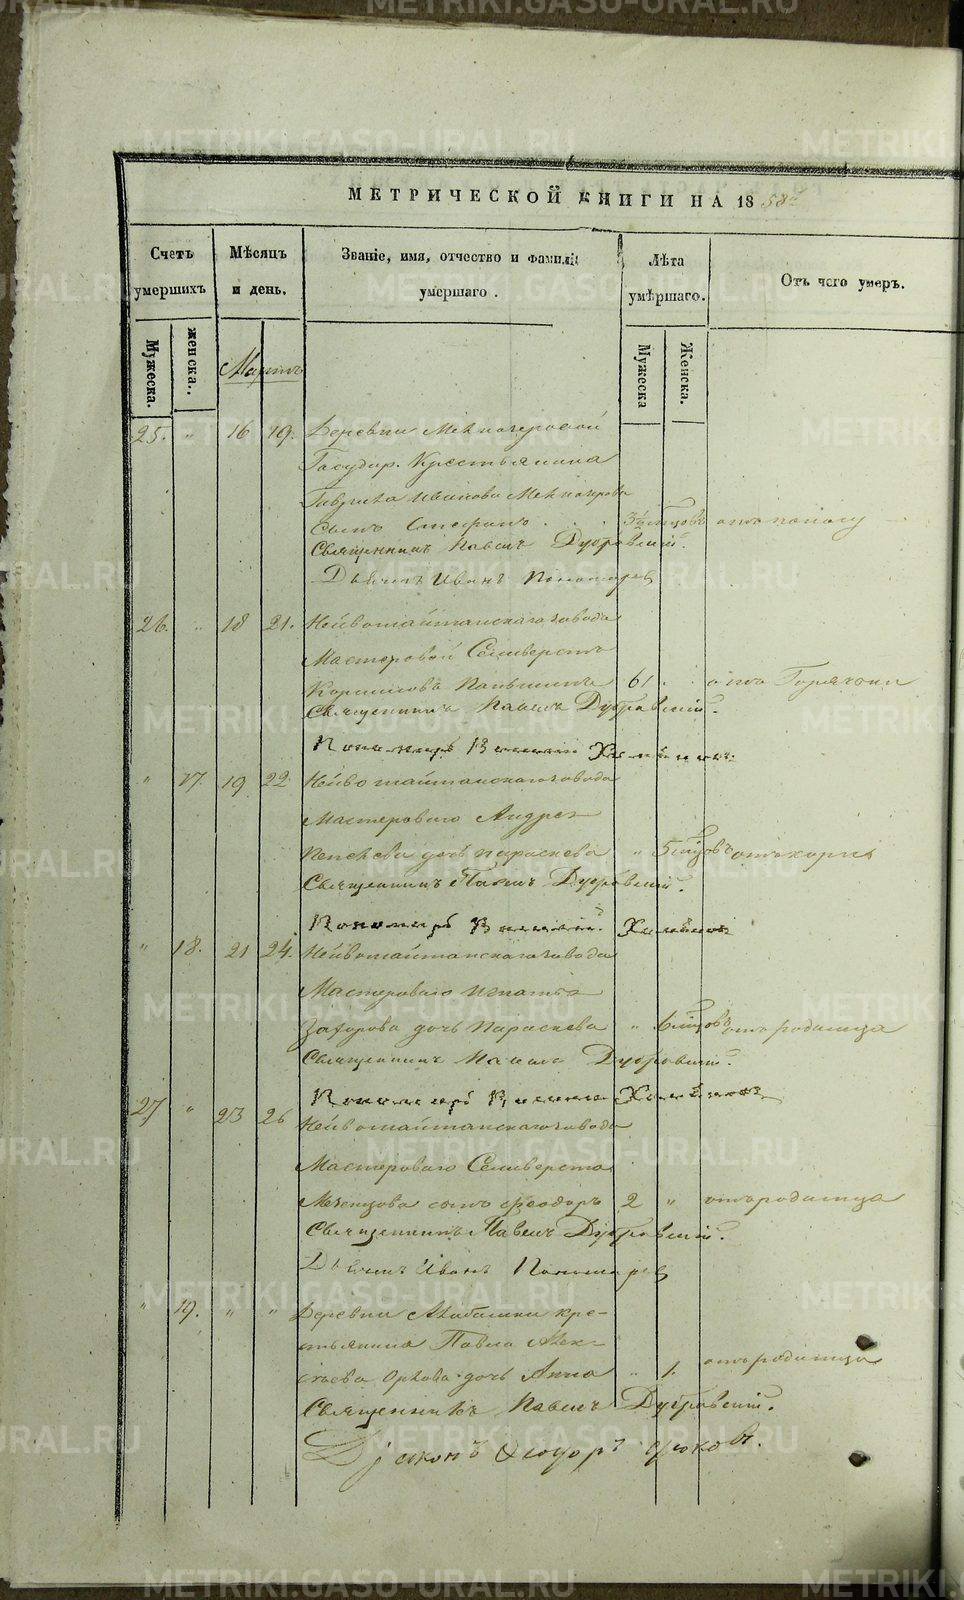 МЕТРИЧЕСКОЙ КНИГИ НА 18 58й
Счетъ умершихъ
Мѣсяцъ и день.
Званіе, имя, отчество и фамилія умершаго.
Лѣта умѣршаго.
Отъ чего умеръ.
Мужеска.
женска..
Мартъ
Мужеска
Женска.
25. " 16 19. Деревни
Государ. Крестьянина
Гаврила Иванова
сынъ Стефанъ . . . 3½ мѣсяцовъ отъ поносу
Священникъ Павелъ Дубровскій.
Дьячекъ Иванъ Пономаревъ
26. " 18 21. Нейвошайтанскаго завода
Мастеровой Селиверстъ
Корниловъ Паньшинъ 61 . отъ Горячки
Священникъ Павелъ Дубровскій.
Пономарь Василій
" 17. 19 22 Нейвошайтанскаго завода
Мастероваго Андрея
дочь Параскева " 5 мѣсяцовъ отъ кори
Священникъ Павелъ Дубровскій.
Пономарь Василій
" 18. 21 24. Нейвошайтанскаго завода
Мастероваго Игнатья
дочь Параскева " 6 мѣсяцовъ отъ родимца
Священникъ Павелъ Дубровскій.
Пономарь Василій
27 " 23 26 Нейвошайтанскаго завода
Мастероваго Селиверста
сынъ Феодоръ 2 " отъ родимца
Священникъ Павелъ Дубровскій.
Дьячекъ Иванъ Пономаревъ
" 19. " " Деревни кре-
стьянина Павла Алек-
сѣева Орлова дочь Анна " 1. отъ родимца
Священникъ Павелъ Дубровскій.
Діаконъ Феодоръ
METRIKI.GASO-URAL.RU